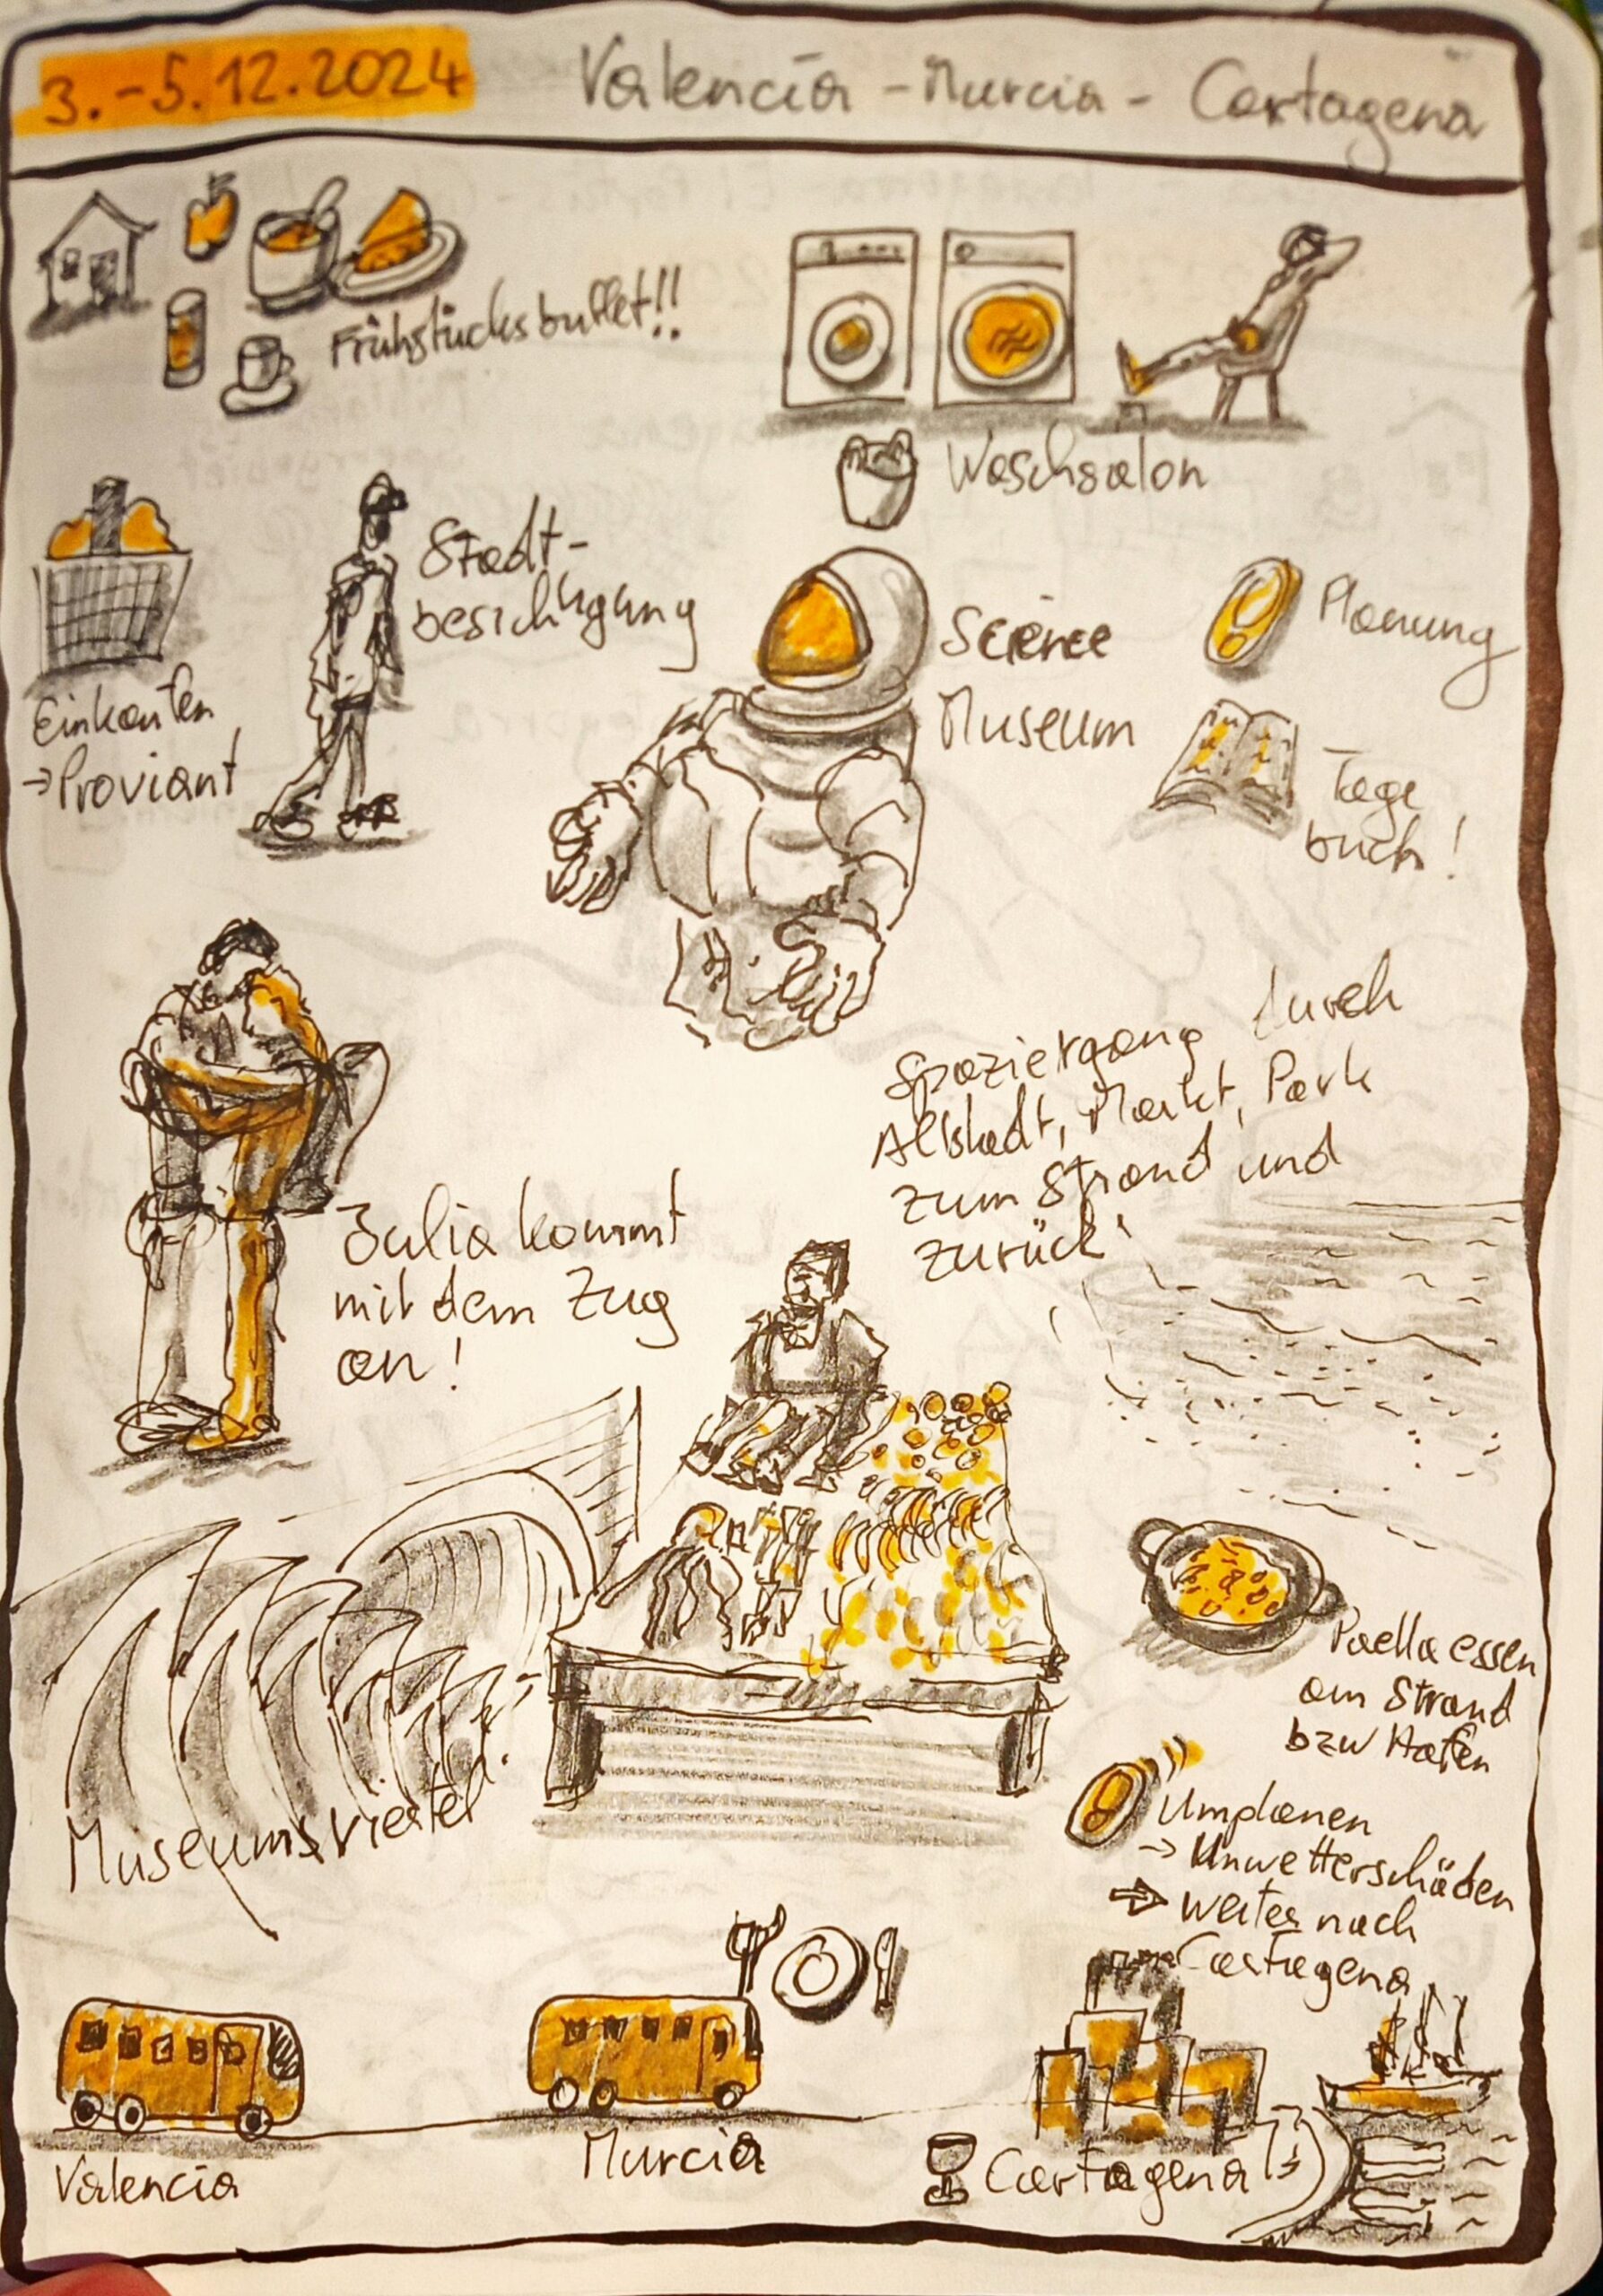 3.-5.12.2024
Valencia - Murcia - Cartagena
Frühstücksbuffet!!
Waschsalon
Stadt-
besichtigung
Einkaufen
→ Proviant
Science
Museum
Planung
Tage
buch!
Spaziergang durch
Altstadt, Markt, Park
zum Strand und
zurück
Julia kommt
mit dem Zug
an!
Museumsviertel
Paella essen
am Strand
bzw Hafen
Umplanen
→ Unwetterschäden
⇒ weiter nach
Cartagena
Valencia
Murcia
Cartagena